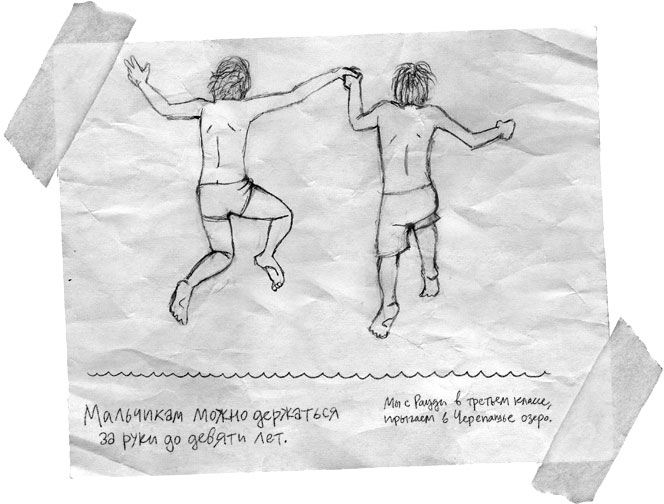 Мальчикам можно держаться
за руки до девяти лет.
Мы с Рауди в третьем классе,
прыгаем в Черепашье озеро.